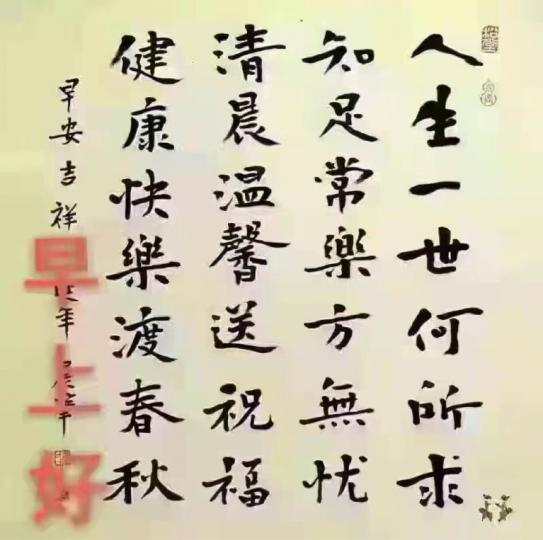 人生一世何所求
知足常樂方無忧
清晨温馨送祝福
健康快樂渡春秋
早安吉祥
年
早上好